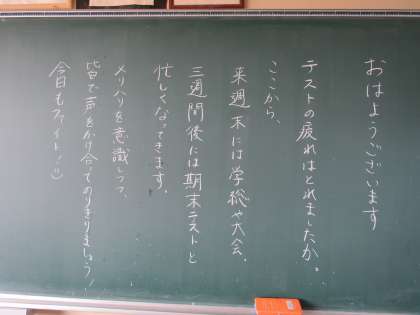 おはようございます
テストの疲れはとれましたか。
ここから、
来週末には学総や大会、
三週間後には期末テストと
忙しくなってきます。
メリハリを意識しつつ、
皆で声をかけ合ってのりきりましょう!
今日もファイト!:)